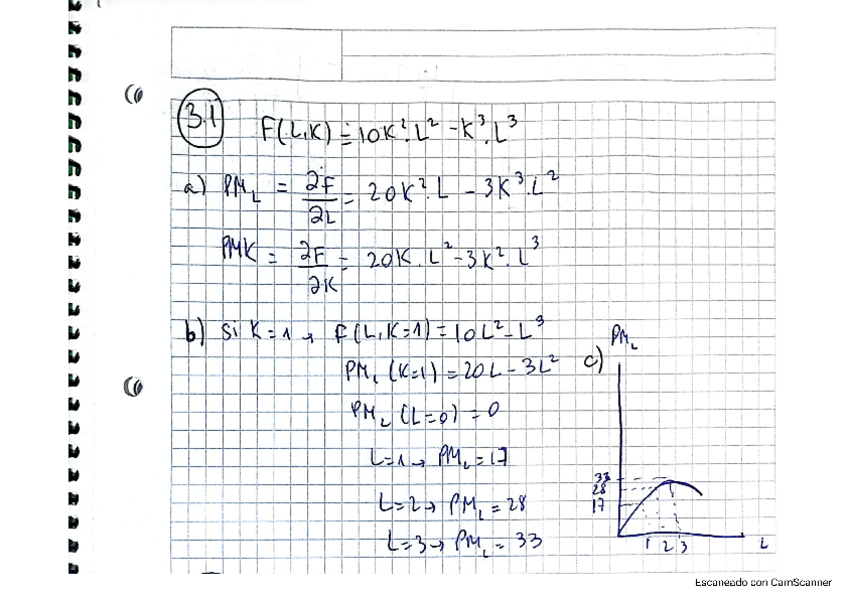 3.1 F(L,K) = 10K².L² - K³.L³
a) PM_L = ∂F/∂L = 20K².L - 3K³.L²
PMK = ∂F/∂K = 20K.L² - 3K².L³
b) si K=1 → F(L,K=1) = 10L² - L³
PM_L (K=1) = 20L - 3L²
PM_L (L=0) = 0
L=1 → PM_L = 17
L=2 → PM_L = 28
L=3 → PM_L = 33
c) PM_L
33
28
17
1 2 3 L
Escaneado con CamScanner